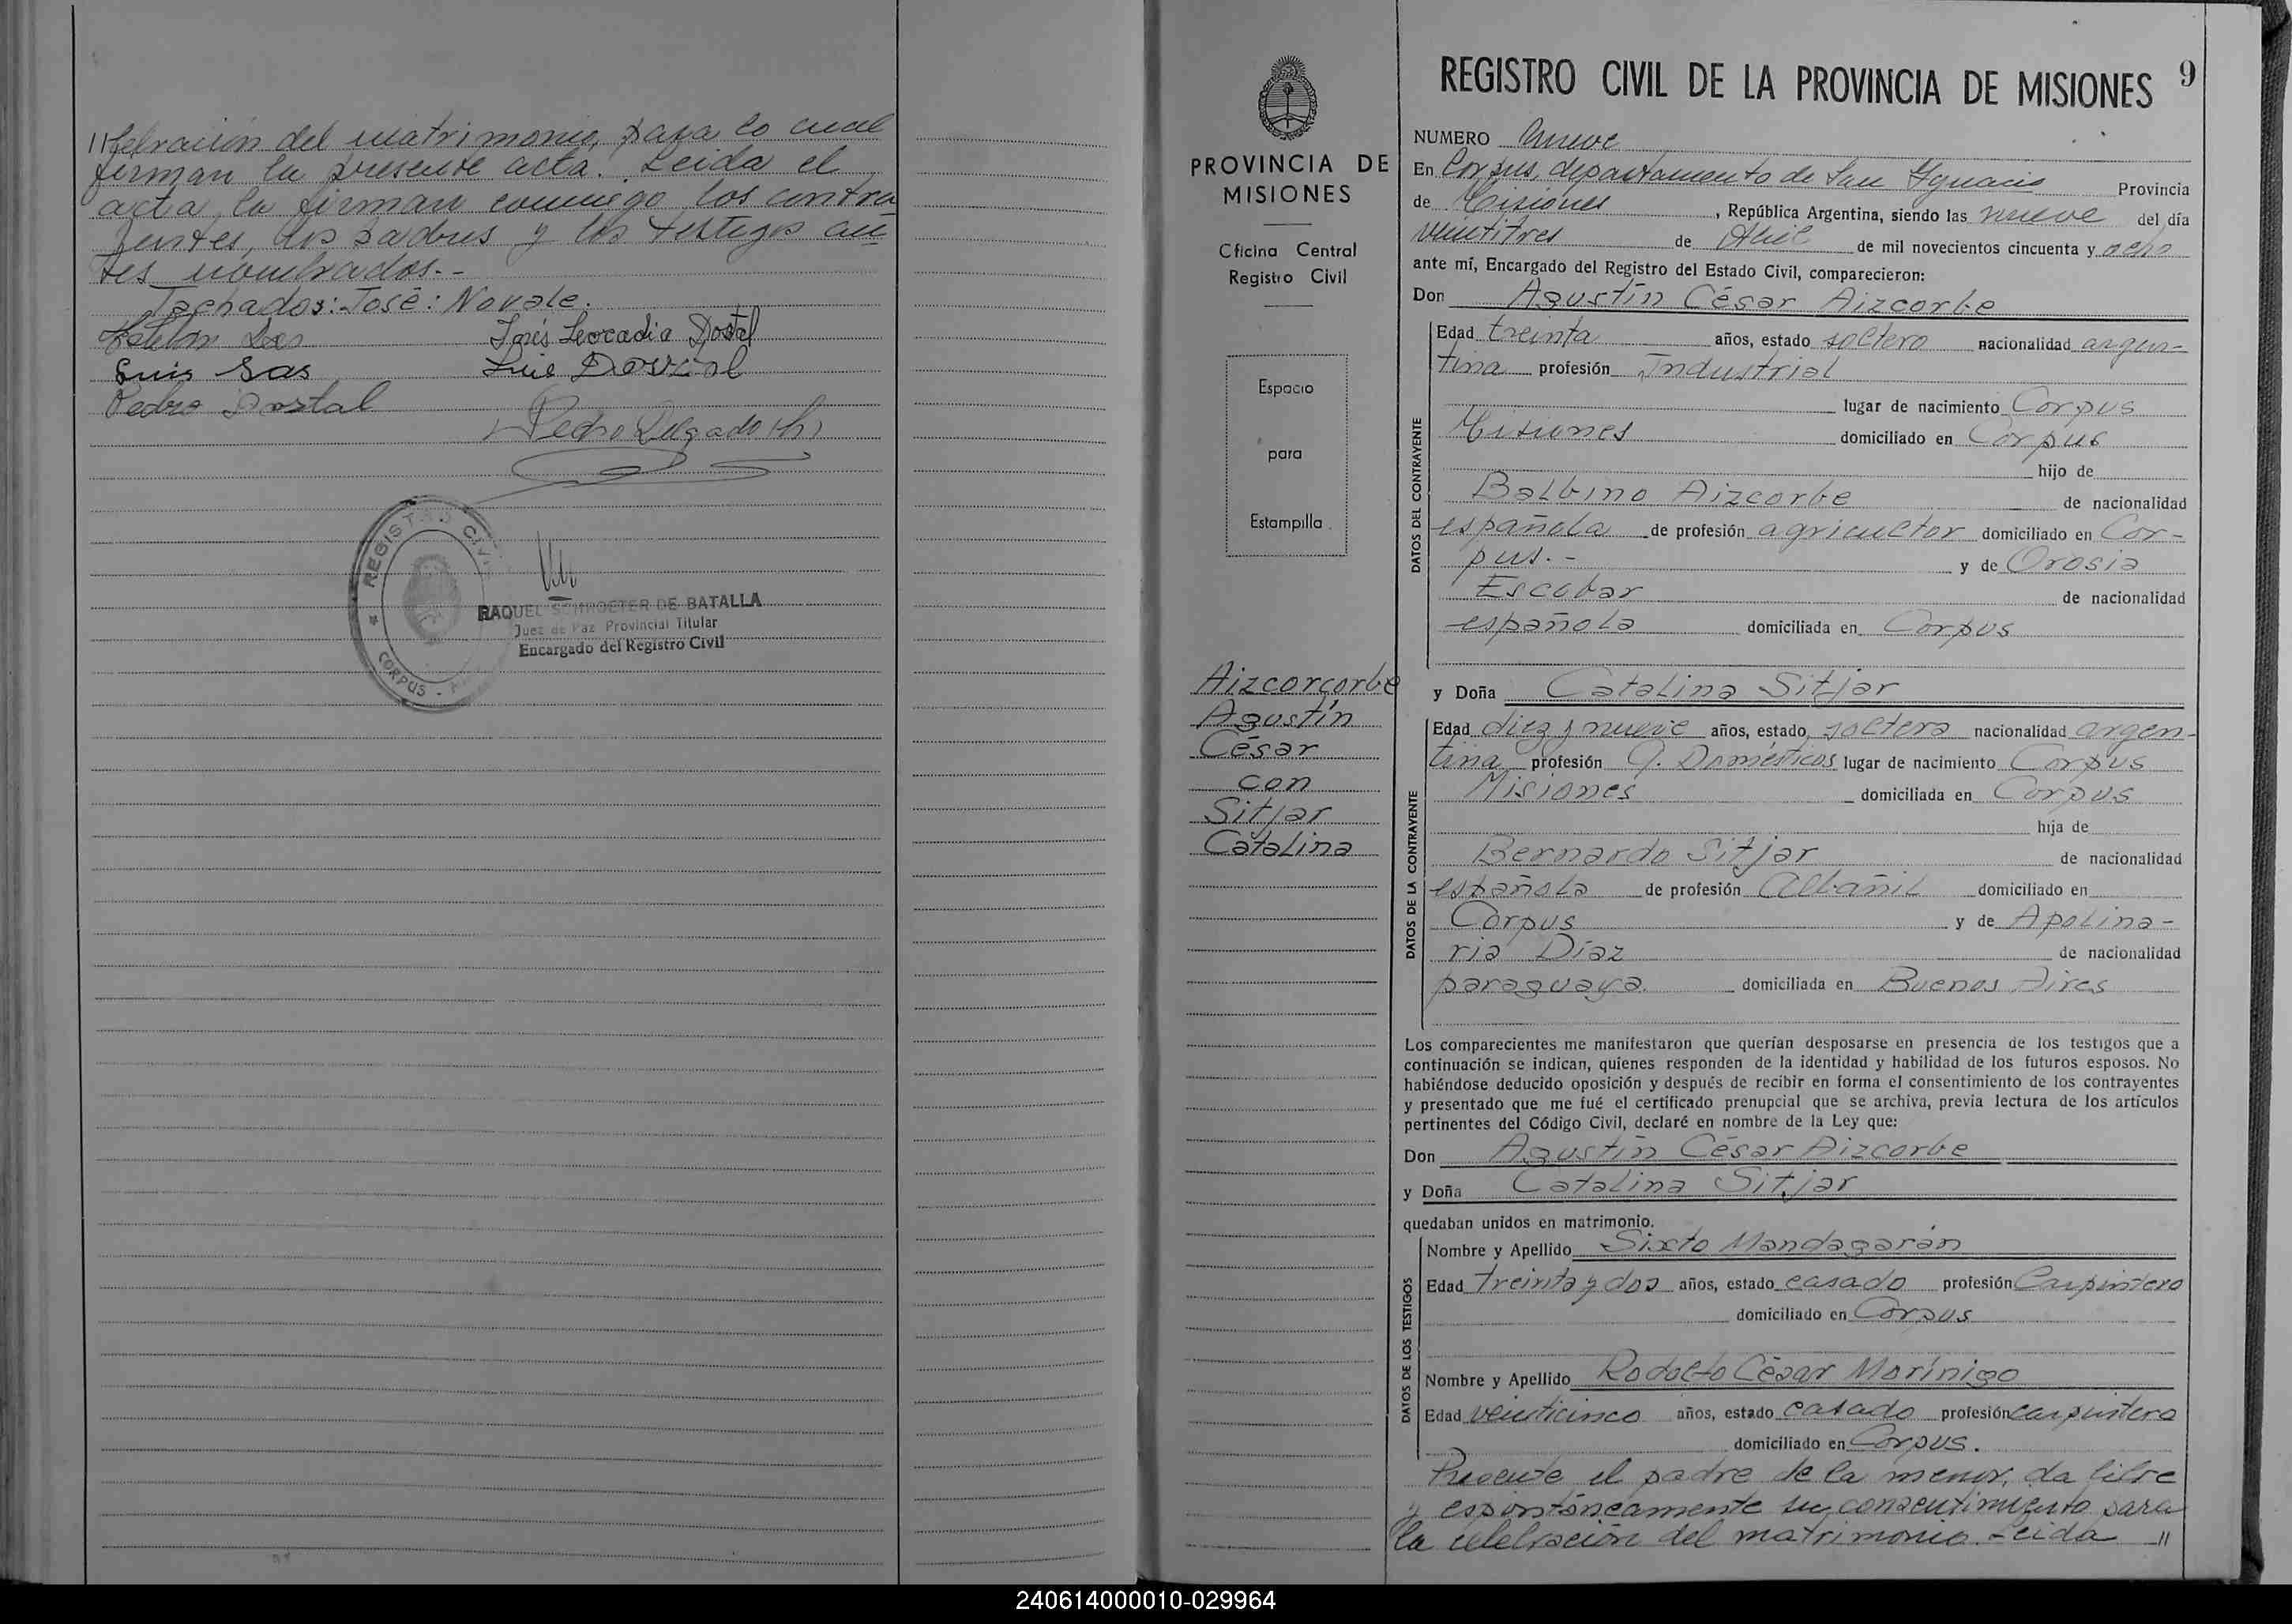 //lebración del matrimonio, para lo cual
firman la presente acta. Leida el
acta, la firman conmigo los contra
yentes, los padres y los testigos an
tes nombrados.-
Tachados: José: Novale.
Inés Leocadia Dostal
Luis Sas
Luis Dostal
Pedro Dostal
Pedro Delgado (h)
REGISTRO CIVIL
CORPUS -
RAQUEL SCHROETER DE BATALLA
Juez de Paz Provincial Titular
Encargado del Registro Civil
PROVINCIA DE
MISIONES
Oficina Central
Registro Civil
Espacio
para
Estampilla
Aizcorcorbe
Agustín
César
con
Sitjar
Catalina
REGISTRO CIVIL DE LA PROVINCIA DE MISIONES 9
NUMERO Nueve
En Corpus, departamento de San Ygnacio Provincia
de Misiones, República Argentina, siendo las nueve del día
veintitres de Abril de mil novecientos cincuenta y ocho
ante mí, Encargado del Registro del Estado Civil, comparecieron:
Don Agustín César Aizcorbe
DATOS DEL CONTRAYENTE
Edad treinta años, estado soltero nacionalidad argen-
tina profesión Industrial
lugar de nacimiento Corpus
Misiones domiciliado en Corpus
hijo de
Balbino Aizcorbe de nacionalidad
española de profesión agricultor domiciliado en Cor-
pus.- y de Orosia
Escobar de nacionalidad
española domiciliada en Corpus
y Doña Catalina Sitjar
DATOS DE LA CONTRAYENTE
Edad diez y nueve años, estado soltera nacionalidad argen-
tina profesión Q. Domésticos lugar de nacimiento Corpus
Misiones domiciliada en Corpus
hija de
Bernardo Sitjar de nacionalidad
española de profesión Albañil domiciliado en
Corpus y de Apolina-
ria Díaz de nacionalidad
paraguaya. domiciliada en Buenos Aires
Los comparecientes me manifestaron que querían desposarse en presencia de los testigos que a
continuación se indican, quienes responden de la identidad y habilidad de los futuros esposos. No
habiéndose deducido oposición y después de recibir en forma el consentimiento de los contrayentes
y presentado que me fué el certificado prenupcial que se archiva, previa lectura de los artículos
pertinentes del Código Civil, declaré en nombre de la Ley que:
Don Agustín César Aizcorbe
y Doña Catalina Sitjar
quedaban unidos en matrimonio.
DATOS DE LOS TESTIGOS
Nombre y Apellido Sixto Mandagarán
Edad treinta y dos años, estado casado profesión Carpintero
domiciliado en Corpus
Nombre y Apellido Rodolfo César Morínigo
Edad veinticinco años, estado casado profesión carpintero
domiciliado en Corpus.
Presente el padre de la menor, da libre
y espontáneamente su consentimiento para
la celebración del matrimonio. Leida //
240614000010-029964